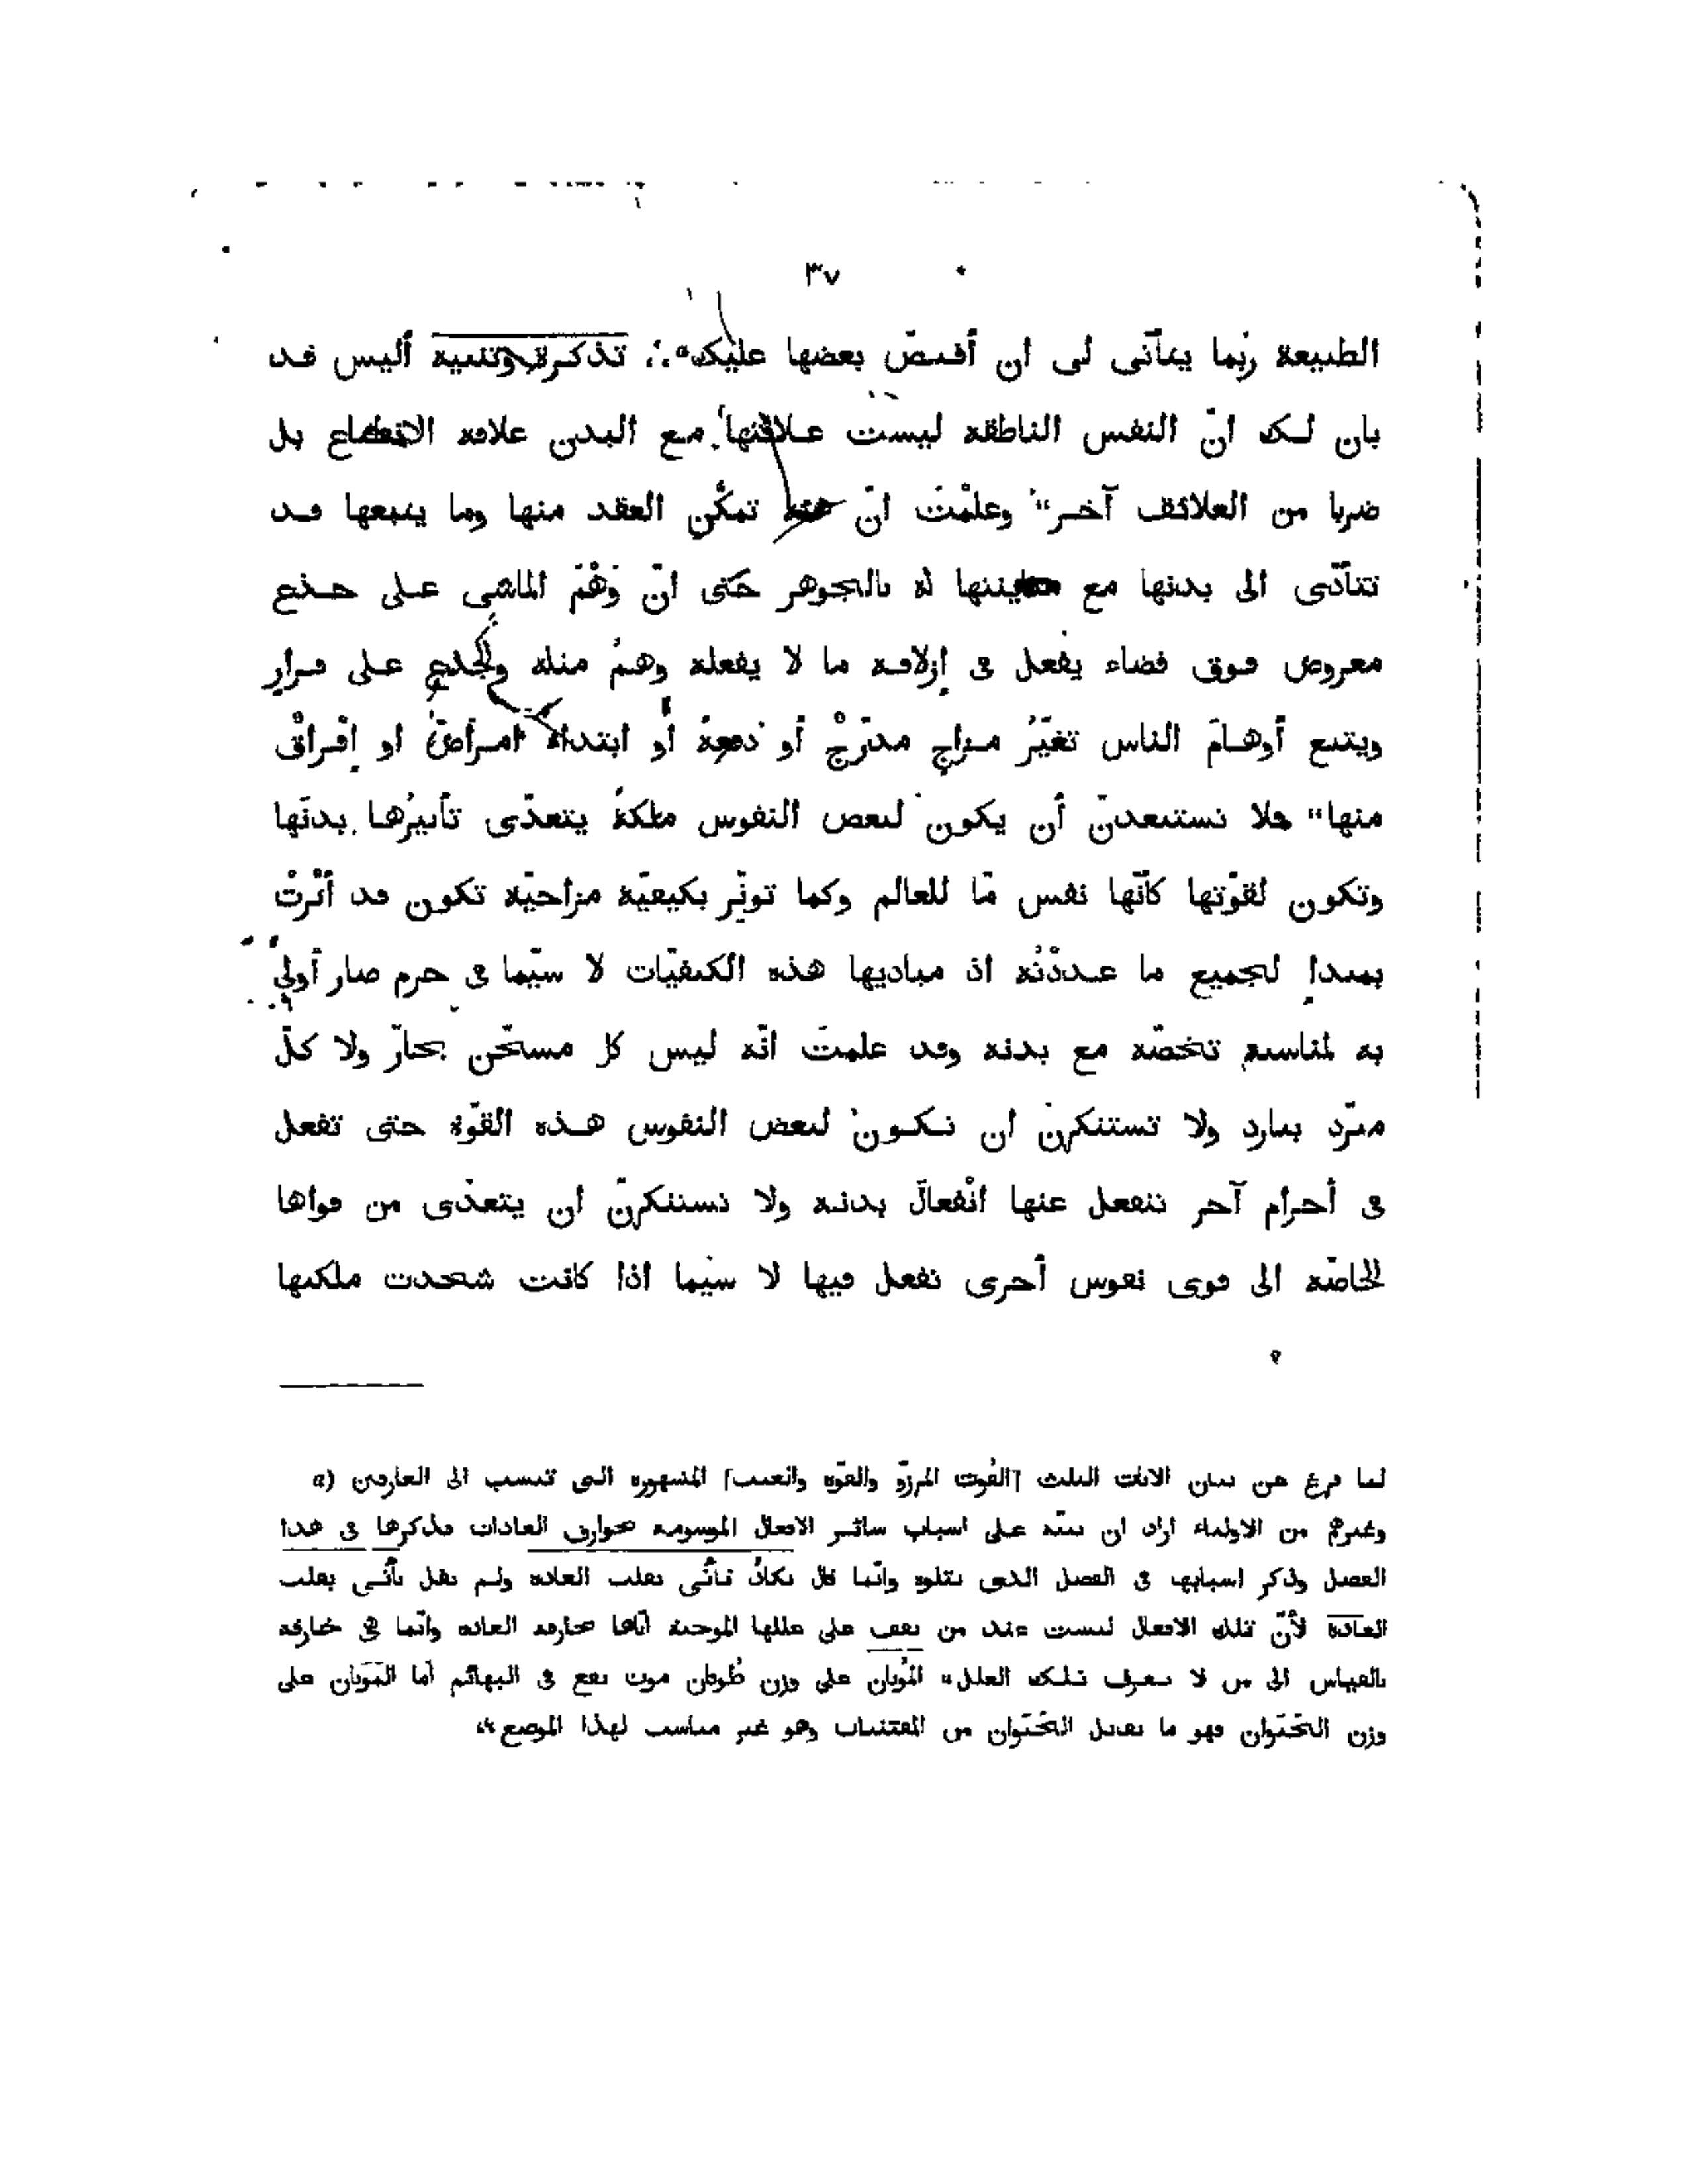 ٣٧
الطبيعة ربّما يتأتّى لى ان أقصّ بعضها عليك ∴ تذكرة وتنبيه أليس قد
بان لك انّ النفس الناطقة ليست علاقتها مع البدن علاقة الانطباع بل
ضربا من العلائق آخر" وعلمْتَ انّ تمكّن العقد منها وما يتبعها قد
تتأدّى الى بدنها مع مباينتها له بالجوهر حتى انّ وَهْمَ الماشى على جذع
معروض فوق فضاء يفعل فى إزلاقه ما لا يفعله وهمُ مثله والجذع على قرارٍ
ويتبع أوهامَ الناس تغيّرُ مزاجٍ مدرّجٌ أو دفعةً أو ابتداءُ امراضٍ او إفْراقٌ
منها" فلا تستبعدنّ أن يكون لبعض النفوس ملكةٌ يتعدّى تأثيرُها بدنَها
وتكون لقوّتها كأنّها نفس مّا للعالم وكما تؤثّر بكيفيّة مزاجيّة تكون قد أثّرتْ
بمبدإ لجميع ما عددْتُه اذ مباديها هذه الكيفيّات لا سيّما فى جرم صار أولى
به لمناسبة تخصّه مع بدنه وقد علمتَ انّه ليس كل مسخّن بحارّ ولا كلّ
مبرّد ببارد ولا تستنكرنّ ان تكون لبعض النفوس هذه القوّة حتى تفعل
فى أجرام آخر تنفعل عنها انْفعالَ بدنه ولا تستنكرنّ ان يتعدّى من قواها
الخاصّة الى قوى نفوس أخرى تفعل فيها لا سيّما اذا كانت شحذت ملكتها
a) لما فرغ عن بيان الآيات الثلث [القُوت المرزوّ والقوّة والغيب] المشهورة التى تنسب الى العارفين
وغيرهم من الاولياء اراد ان ينبّه على اسباب سائر الافعال الموسومة بخوارق العادات فذكرها فى هذا
الفصل وذكر اسبابها فى الفصل الذى يتلوه وانّما قال تكادُ تأتى بقلب العادة ولم يقل تأتى بقلب
العادة لأنّ تلك الافعال ليست عند من يقف على عللها الموجبة ايّاها بخارقة العادة وانّما هى خارقة
بالقياس الى من لا يعرف تلك العلل" المُوتان على وزن طُوفان موت يقع فى البهائم أما المَوَتان على
وزن الحَيَوان فهو ما يقابل الحَيَوان من المقتنيات وهو غير مناسب لهذا الموضع"